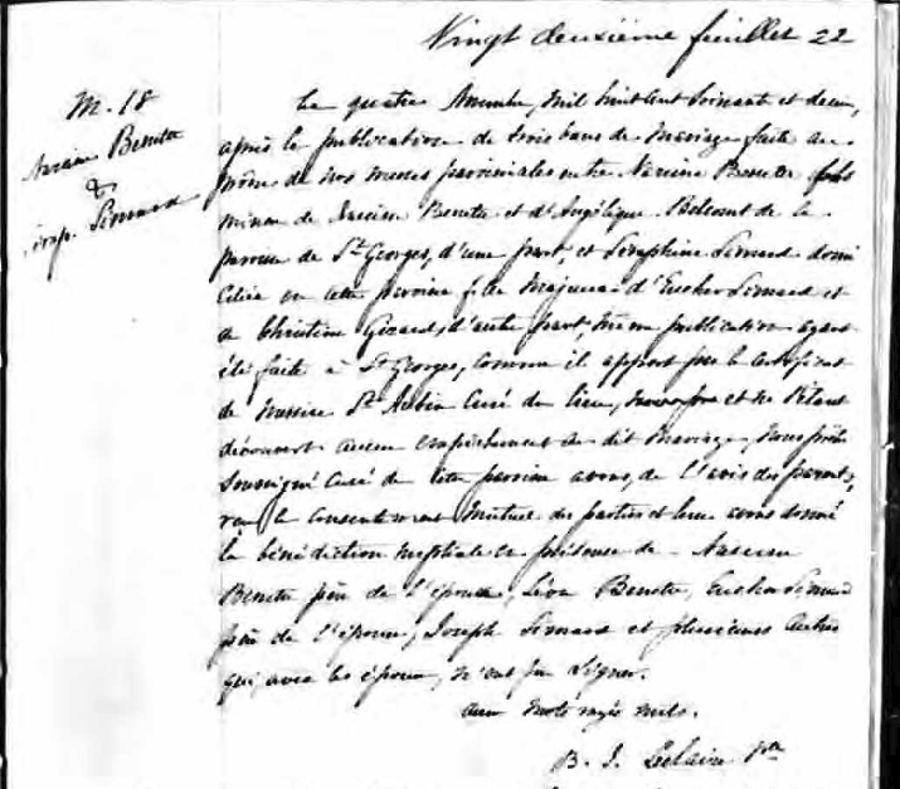 Vingt deuxième feuillet 22
M. 18
Narcisse Benette
&
Simard
Le quatre Novembre, mil huit cent soixante et deux,
après la publication de trois bans de Mariage faite au
prône de nos messes paroissiales entre Narcisse Benette fils
mineur de Narcisse Benette et d'Angélique Belcourt de la
paroisse de St Georges, d'une part, et Séraphine Simard domi
ciliée en cette paroisse fille Majeure d'Eucher Simard et
de Christine Girard, d'autre part, même publication ayant
été faite à St Georges, comme il appert par le certificat
de Messire St Aubin Curé du lieu, et ne s'étant
découvert aucun empêchement au dit mariage, Nous prêtre
soussigné Curé de cette paroisse avons, de l'avis des parents,
reçu le consentement Mutuel des parties et leur avons donné
la bénédiction nuptiale en présence de Narcisse
Benette père de l'époux, Léon Benette, Eucher Simard
père de l'épouse, Joseph Simard et plusieurs autres
qui, avec les époux, n'ont pu signer.
mots rayés nuls.
B. J. Leclaire ptre